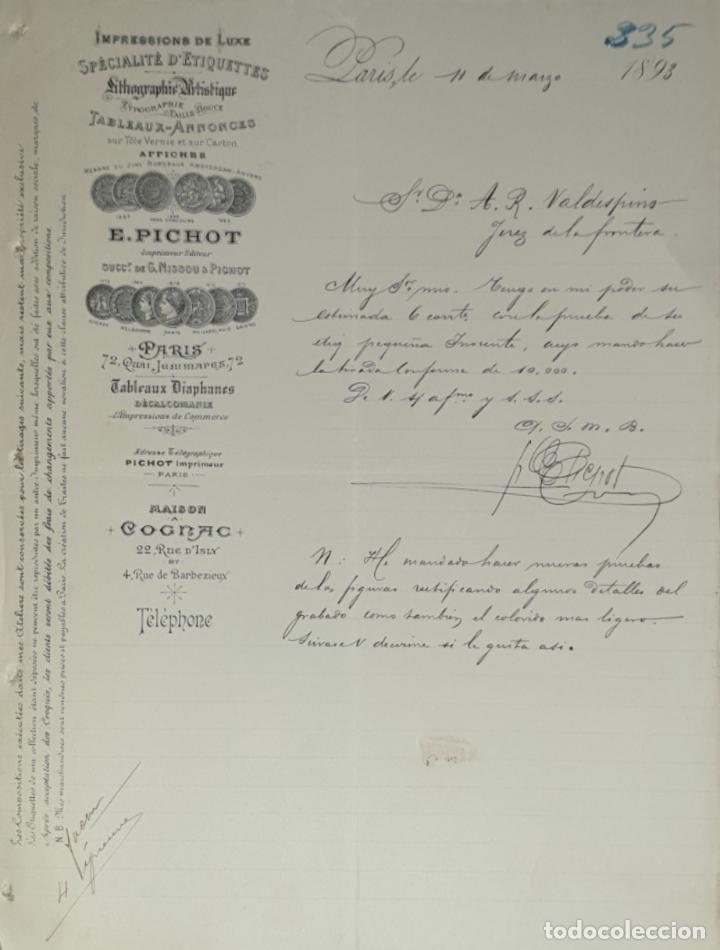 335
IMPRESSIONS DE LUXE
SPÉCIALITÉ D'ETIQUETTES
Lithographie Artistique
TYPOGRAPHIE
TAILLE DOUCE
TABLEAUX-ANNONCES
sur Tôle Vernie et sur Carton
AFFICHES
MEMBRE DU JURY BORDEAUX AMSTERDAM, ANVERS
E. PICHOT
Imprimeur-Editeur
SUCCr. DE G. NISSOU & PICHOT
PARIS
72, Quai Jemmapes, 72
Tableaux Diaphanes
DÉCALCOMANIE
Impressions de Commerce
Adresse Télégraphique
PICHOT Imprimeur
PARIS
MAISON
À
COGNAC
22, RUE D'ISLY
ET
4, Rue de Barbezieux
Téléphone
Paris, le 11 de Marzo 1893
Sr. Dn. A. R. Valdespino
Jerez de la frontera.
Muy Sr. mio. Tengo en mi poder su
estimada 6 corrte. con la prueba de su
etiq pequeña Inocente, cuyo mando hacer
la tirada conforme de 10,000.
De V. s/ afmo y S. S. S.
Q. S. M. B.
E Pichot
N: He mandado hacer nuevas pruebas
de las figuras rectificando algunos detalles del
grabado como tambien el colorido mas ligero.
Sirvase V decirme si le gusta asi.
Les Compositions exécutées dans mes Ateliers sont conservées pour les tirages suivants, mais restent ma propriété exclusive
Les Etiquettes de ma collection étant déposées ne peuvent être reproduites par un autre Imprimeur même lorsquelles ont été faites avec addition de raison sociale, marques, de
Après acceptation des Croquis, les clients seront débités des frais de changements apportés par eux aux compositions
N. B. Mes marchandises sont vendues prises et payables à Paris. La création de Traites ne fait aucune novation à cette clause attributive de Juridiction
todocoleccion
todocoleccion.net